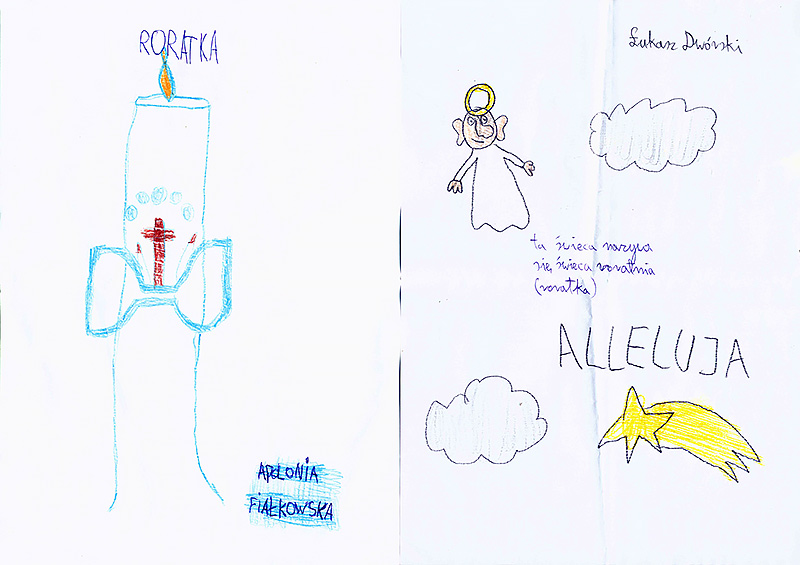 RORATKA
APOLONIA
FIAŁKOWSKA
Łukasz Dwórski
ta świeca nazywa
się świeca roratnia
(roratka)
ALLELUJA